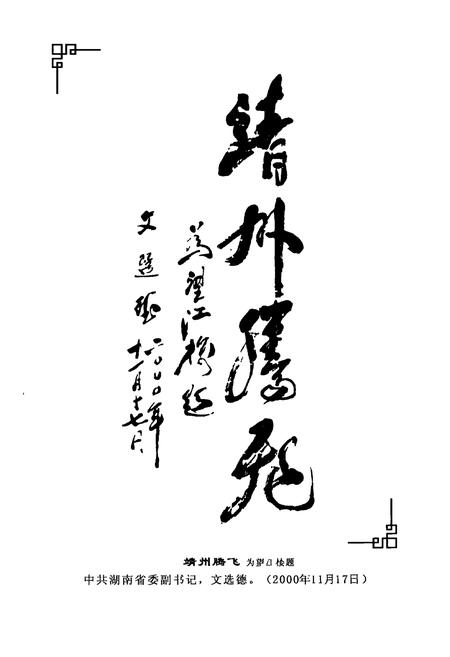 靖州腾飞
为望江楼题
文选德
二〇〇〇年
十一月十七日
靖州腾飞 为望江楼题
中共湖南省委副书记，文选德。（2000年11月17日）